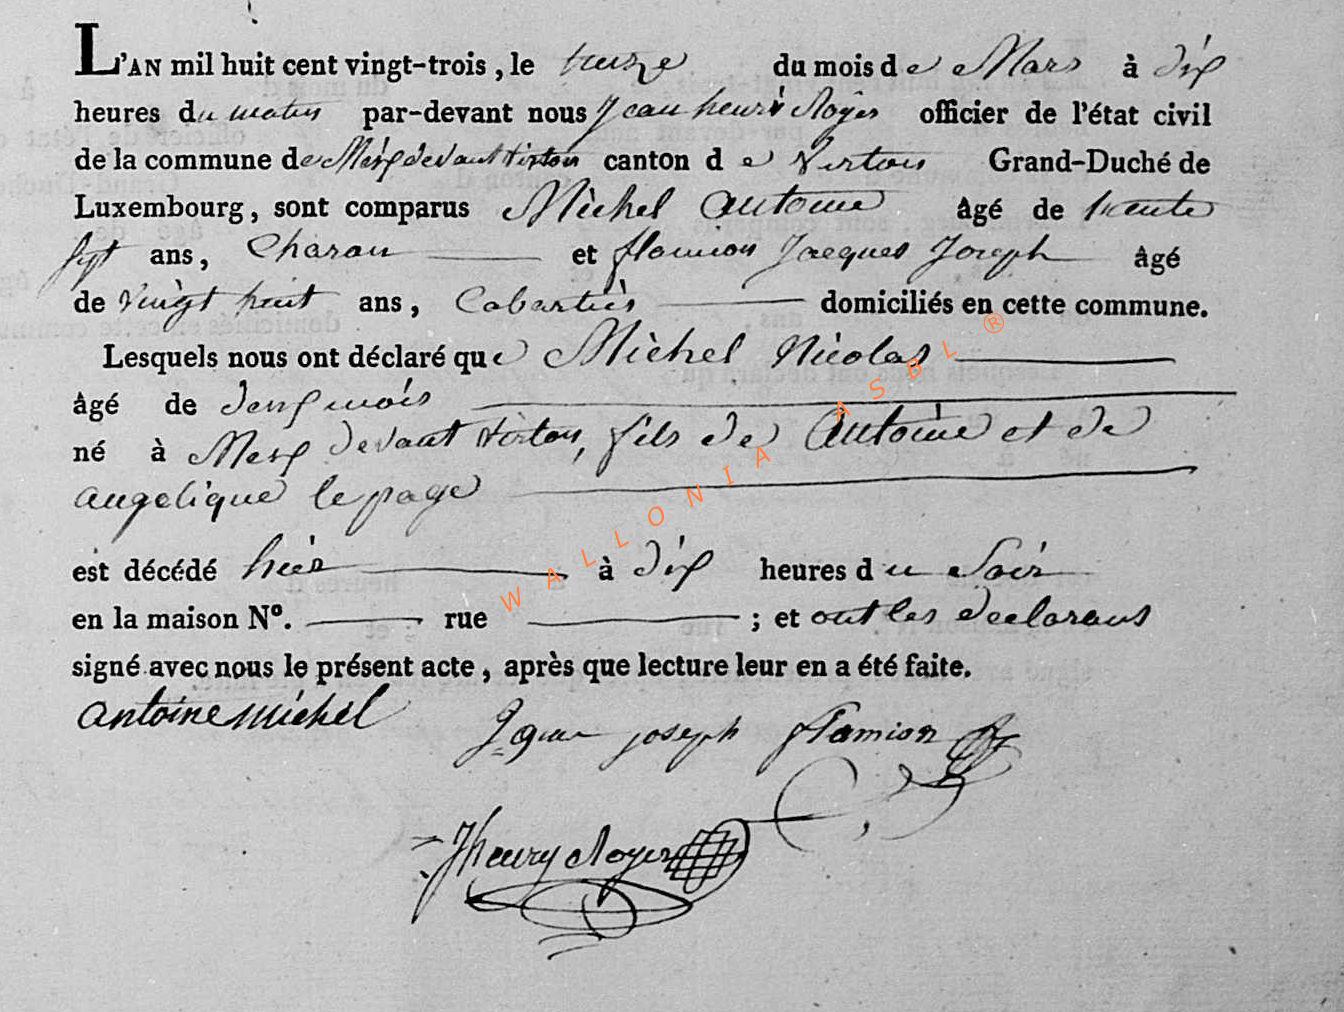 L'AN mil huit cent vingt-trois, le treize du mois de Mars à dix
heures du matin par-devant nous Jean henri Royer officier de l'état civil
de la commune de Meix devant Virton canton de Virton Grand-Duché de
Luxembourg, sont comparus Michel Antoine âgé de trente
sept ans, Charon et flamion Jacques Joseph âgé
de vingt huit ans, Cabartier domiciliés en cette commune.
Lesquels nous ont déclaré que Michel Nicolas
âgé de deux mois
né à Meix devant Virton, fils de Antoine et de
angelique lepage
est décédé hier à dix heures du Soir
en la maison N°. rue ; et ont les declarans
signé avec nous le présent acte, après que lecture leur en a été faite.
antoine michel
Jque joseph flamion
JHenry Royer
WALLONIA ASBL ®